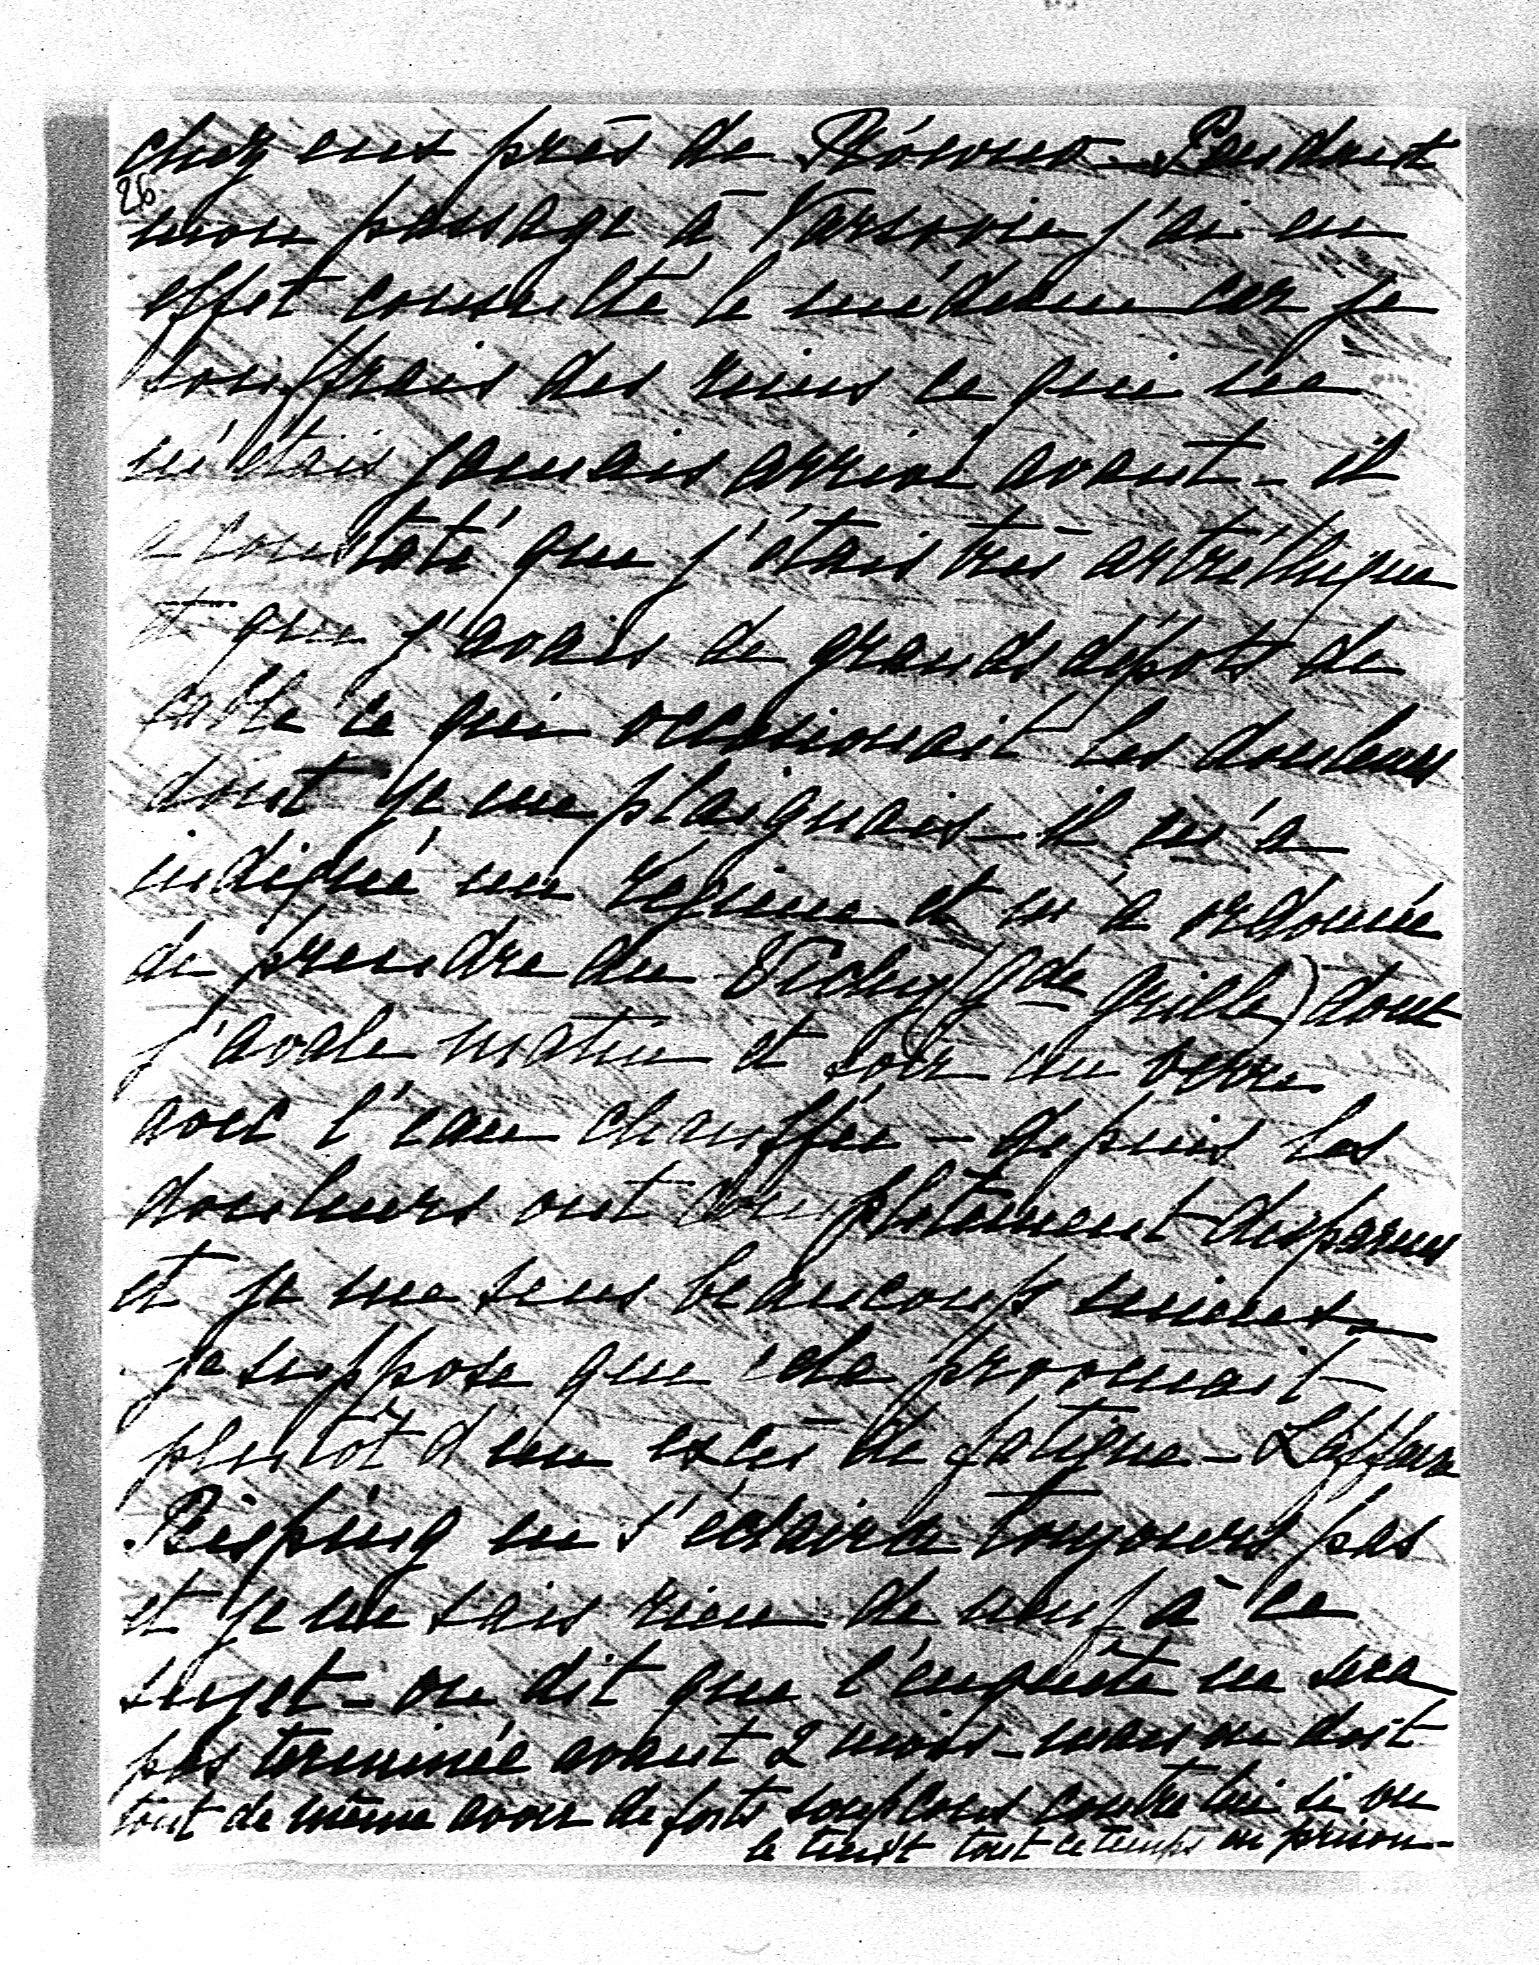 chez eux près de Równo. Pendant
26.
mon passage à Varsovie j'ai en
effet consulté le médecin car je
souffrais des reins ce qui ne
m'étais jamais arrivé avant - il
a constaté que j'étais très artréthique
et que j'avais de grands dépots de
sable ce qui occasionait les douleurs
dont je me plaignais - il m'a
indiqué un régime et m'a ordonné
de prendre du Vichy (gde grille) dont
j'avale matin et soir un verre
avec l'eau chauffée - depuis les
douleurs ont complètement disparues
et je me sens beaucoup mieux -
je suppose que cela provenait
plutôt d'un excès de fatigue - L'affaire
Bisping ne s'éclaircie toujours pas
et je ne sais rien de neuf à ce
sujet - on dit que l'enquête ne sera
pas terminée avant 2 mois - mais on doit
tout de même avoir de forts soupçons contre lui si on
le tient tout ce temps en prison -